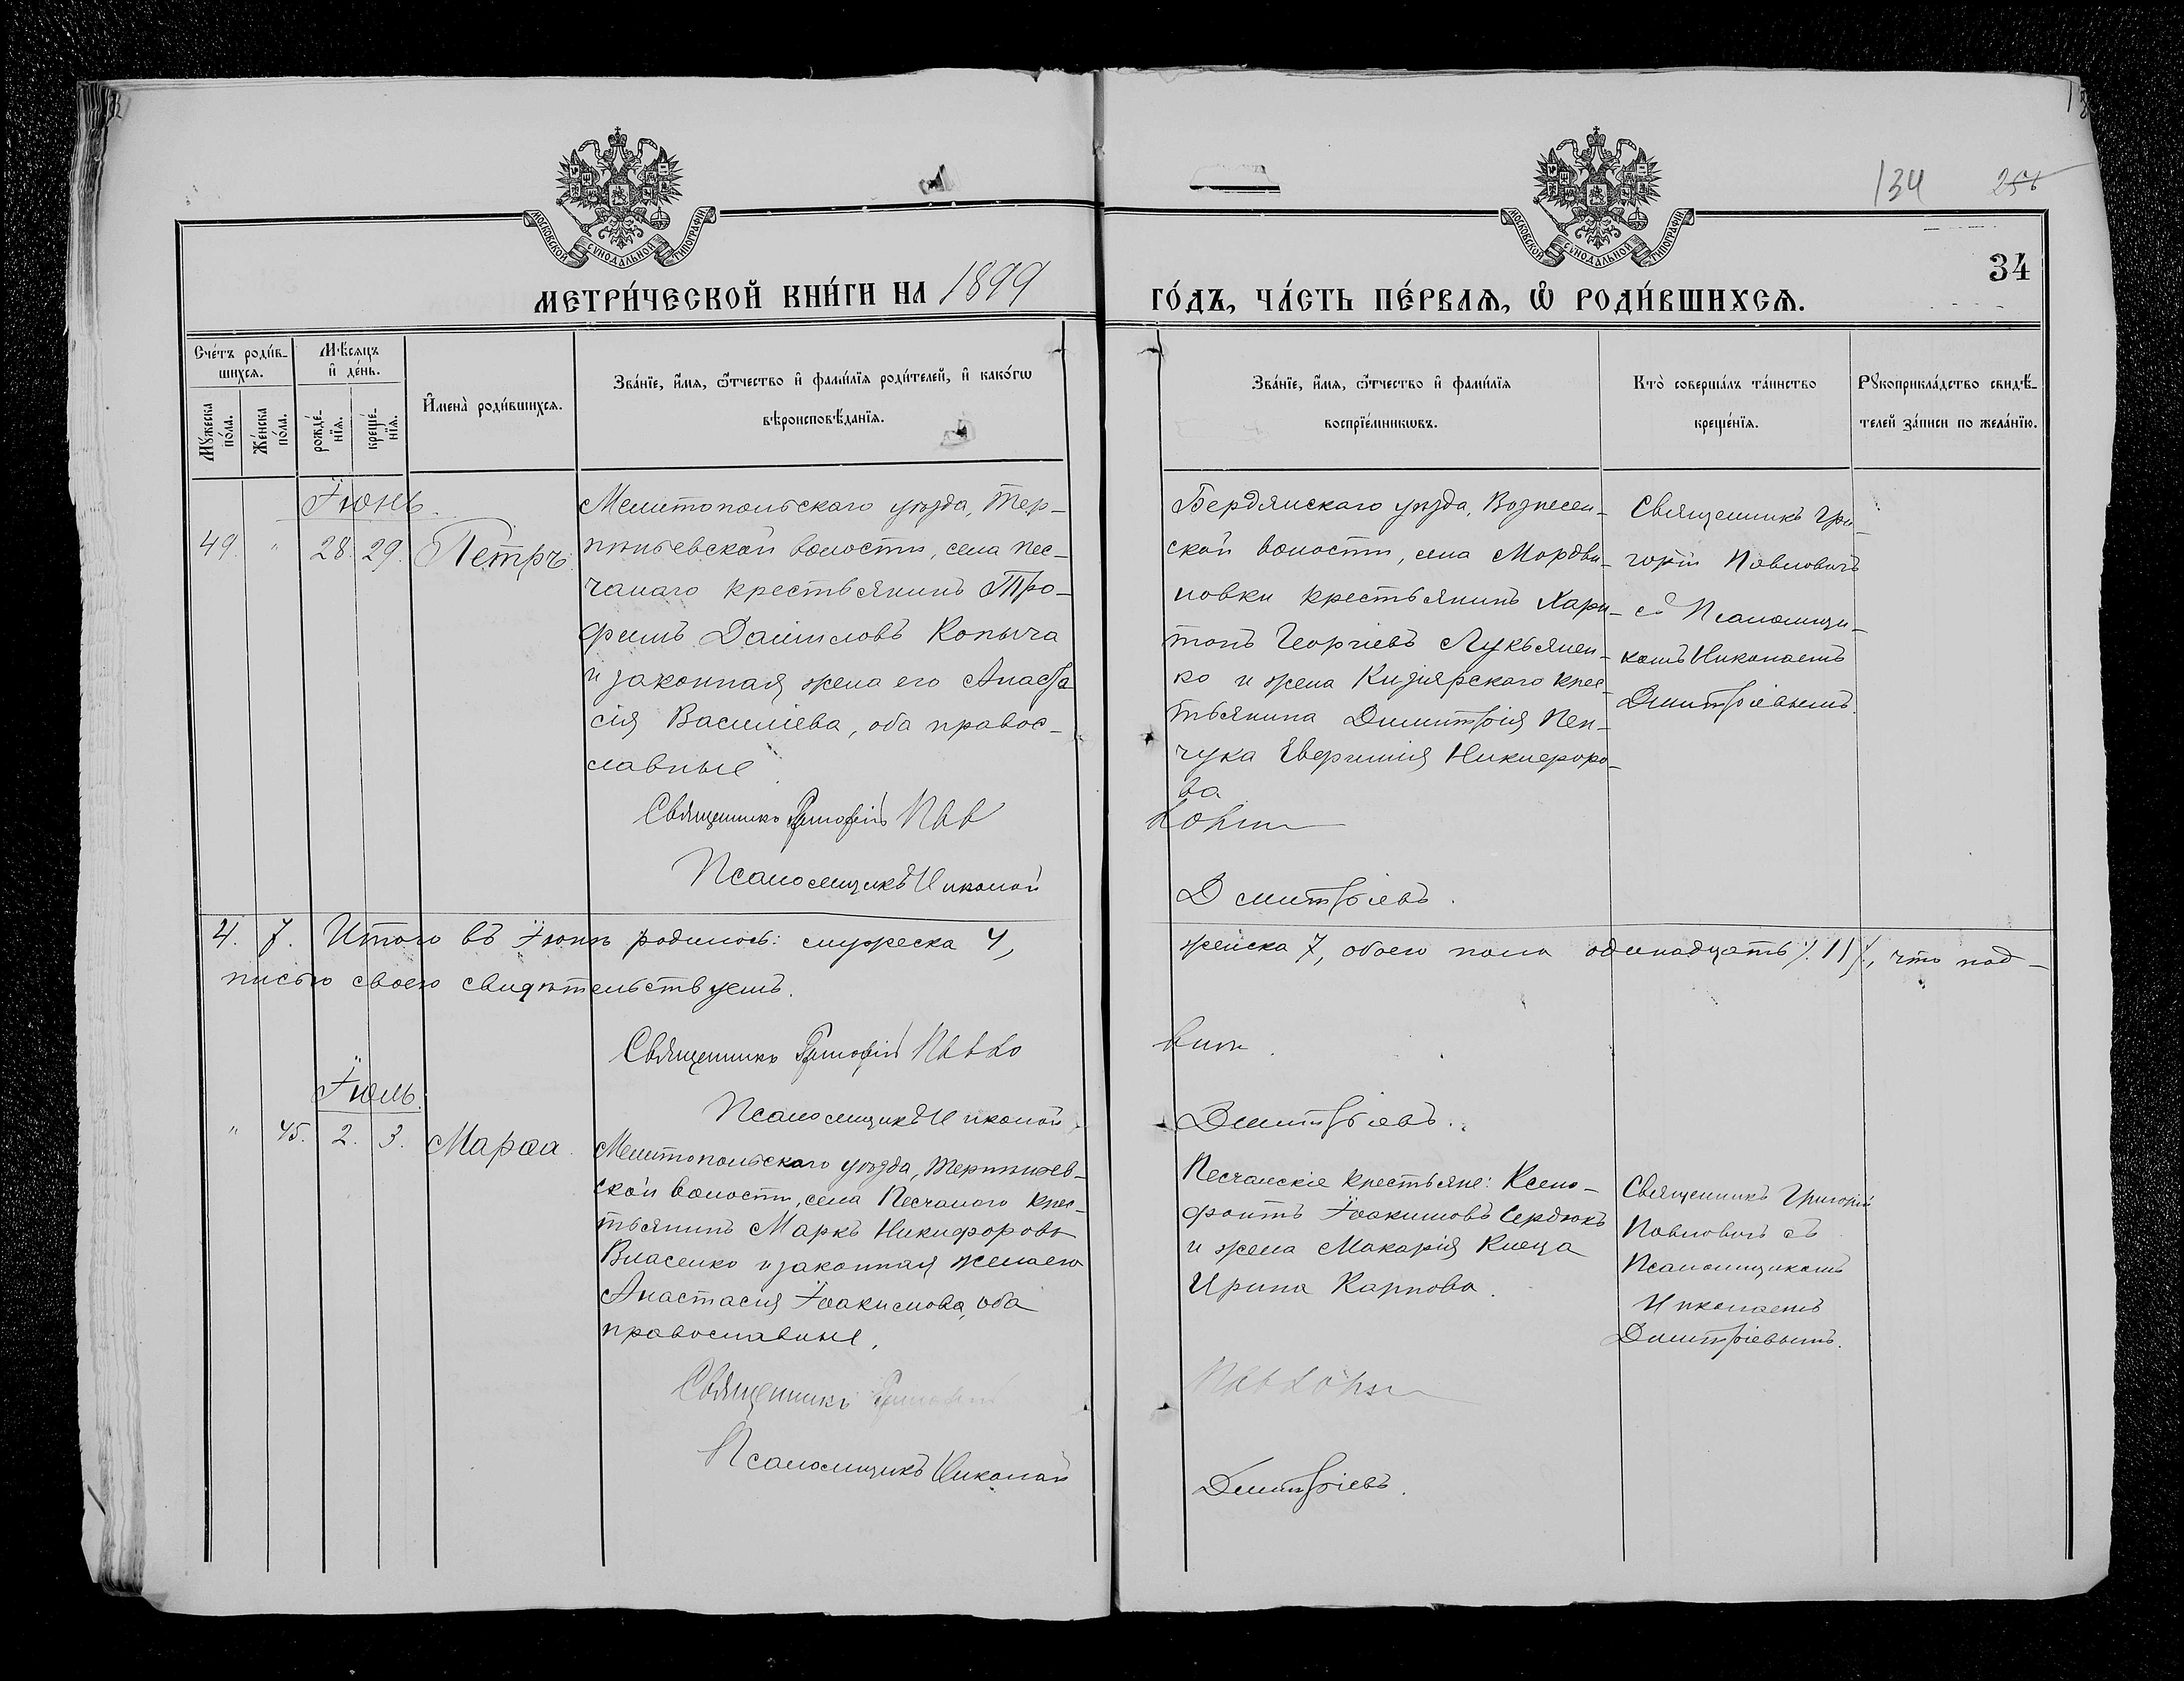 134 254
34
МОСКОВСКОЙ СѴНОДАЛЬНОЙ ТИПОГРАФІИ
МОСКОВСКОЙ СѴНОДАЛЬНОЙ ТИПОГРАФІИ
МЕТРИ́ЧЕСКОЙ КНИ́ГИ НА 1899
ГО́ДЪ, ЧА́СТЬ ПЕ́РВАѦ, Ѽ РОДИ́ВШИХСѦ.
Сче́тъ роди́в-
шихсѧ.
Мѣ́сѧцъ
и҆ де́нь.
И҆мена̀ роди́вшихсѧ.
Зва́нїе, и҆́мѧ, ѻ҆́тчество и҆ фамѝлїѧ роди́телей, и҆ како́гѡ
вѣроисповѣ́данїѧ.
Мꙋ́жеска
по́ла.
Же́нска
по́ла.
рожде́-
нїѧ.
креще́-
нїѧ.
Зва́нїе, и҆́мѧ, ѻ҆́тчество и҆ фамѝлїѧ
воспрїе́мникѡвъ.
Кто̀ соверша́лъ та́инство
креще́нїѧ.
Рꙋкоприкла́дство свидѣ́-
телей за́писи по жела́нїю.
Іюнь.
49. " 28. 29. Петръ.
Мелитопольскаго уѣзда, Тер-
пѣньевской волости, села Пес-
чанаго крестьянинъ Тро-
фимъ Даніиловъ Копыча
и законная жена его Анаста-
сія Василіева, оба правос-
славные
Священникъ Григорій Пав
Псаломщикъ Николай
Бердянскаго уѣзда, Вознесен-
ской волости, села Мордви-
новки крестьянинъ Хари-
тонъ Георгіевъ Лукьянен-
ко и жена Кизіярскаго крес-
тьянина Димитрія Пен-
чука Евфимія Никифоро-
ва
ловичъ
Дмитріевъ.
Священникъ Гри-
горій Павловичъ
съ Псаломщи-
комъ Николаемъ
Дмитріевымъ.
4. 7. Итого въ Іюнѣ родилось: мужеска 4,
женска 7, обоего пола одинадцать /.11/., что под-
писью своею свидѣтельствуемъ.
Священникъ Григорій Павло
вичъ.
Псаломщикъ Николай
Дмитріевъ.
Іюль.
" 45. 2. 3. Марѳа.
Мелитопольскаго уѣзда, Терпѣньев-
ской волости, села Песчанаго крес-
тьянинъ Маркъ Никифоровъ
Власенко и законная жена его
Анастасія Іоакимова, оба
православные.
Священникъ Григорій
Псаломщикъ Николай
Песчанскіе крестьяне: Ксено-
фонтъ Іоакимовъ Сердюкъ
и жена Макарія Клеца
Ирина Карпова.
Павловичъ
Дмитріевъ.
Священникъ Григорій
Павловичъ съ
Псаломщикомъ
Николаемъ
Дмитріевымъ.